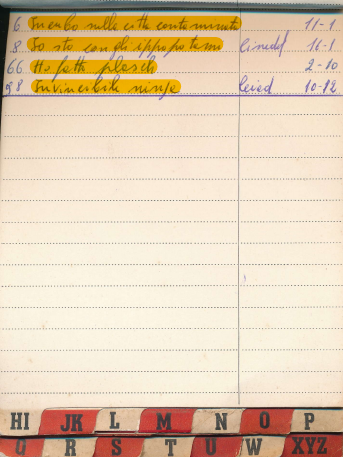 6 Incubo sulla città contaminata 11-1
8 Io sto con gli ippopotami Cinedd 16-1
66 Ho fatto splasch 2-10
98 Invincibile ninja 10-82
HI JK L M N O P
Q R S T U W XYZ